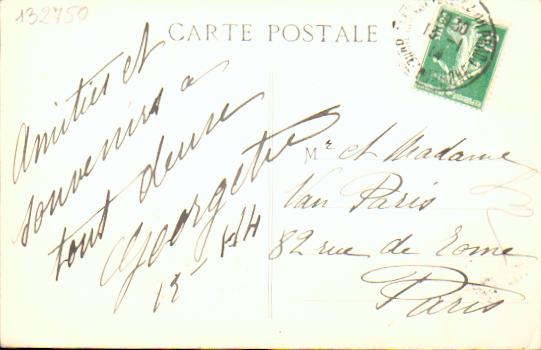 132750
CARTE POSTALE
Amitiés et
souvenirs à
tout deuse
Georgette
Mr et Madame
Van Paris
82 rue de Rome
Paris